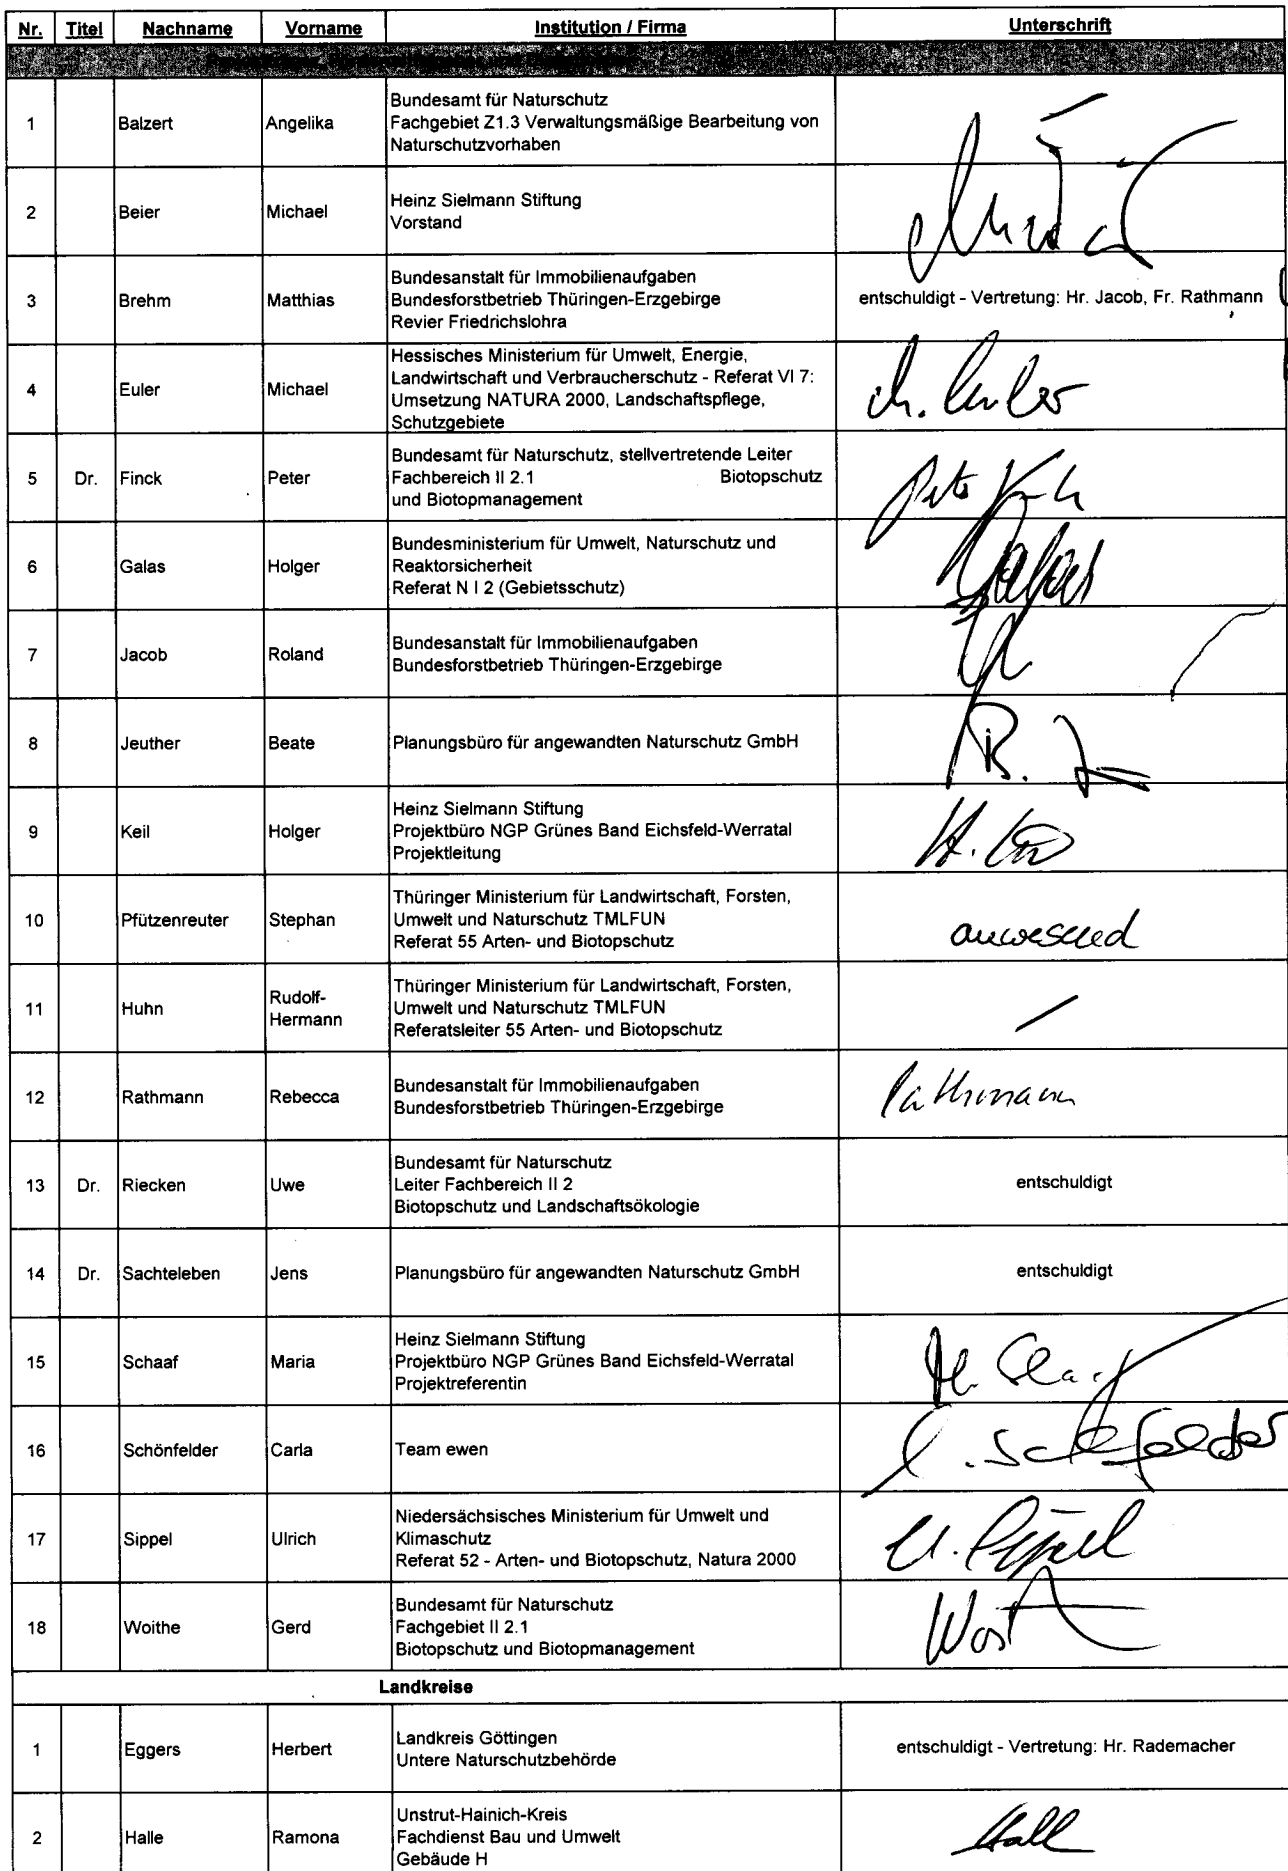 Nr. Titel Nachname Vorname Institution / Firma Unterschrift
1 Balzert Angelika Bundesamt für Naturschutz
Fachgebiet Z1.3 Verwaltungsmäßige Bearbeitung von
Naturschutzvorhaben
2 Beier Michael Heinz Sielmann Stiftung
Vorstand
3 Brehm Matthias Bundesanstalt für Immobilienaufgaben
Bundesforstbetrieb Thüringen-Erzgebirge
Revier Friedrichslohra
entschuldigt - Vertretung: Hr. Jacob, Fr. Rathmann
4 Euler Michael Hessisches Ministerium für Umwelt, Energie,
Landwirtschaft und Verbraucherschutz - Referat VI 7:
Umsetzung NATURA 2000, Landschaftspflege,
Schutzgebiete
M. Euler
5 Dr. Finck Peter Bundesamt für Naturschutz, stellvertretende Leiter
Fachbereich II 2.1 Biotopschutz
und Biotopmanagement
Peter Finck
6 Galas Holger Bundesministerium für Umwelt, Naturschutz und
Reaktorsicherheit
Referat N I 2 (Gebietsschutz)
Galas
7 Jacob Roland Bundesanstalt für Immobilienaufgaben
Bundesforstbetrieb Thüringen-Erzgebirge
8 Jeuther Beate Planungsbüro für angewandten Naturschutz GmbH
9 Keil Holger Heinz Sielmann Stiftung
Projektbüro NGP Grünes Band Eichsfeld-Werratal
Projektleitung
H. Keil
10 Pfützenreuter Stephan Thüringer Ministerium für Landwirtschaft, Forsten,
Umwelt und Naturschutz TMLFUN
Referat 55 Arten- und Biotopschutz
anwesend
11 Huhn Rudolf-
Hermann
Thüringer Ministerium für Landwirtschaft, Forsten,
Umwelt und Naturschutz TMLFUN
Referatsleiter 55 Arten- und Biotopschutz
12 Rathmann Rebecca Bundesanstalt für Immobilienaufgaben
Bundesforstbetrieb Thüringen-Erzgebirge
Rathmann
13 Dr. Riecken Uwe Bundesamt für Naturschutz
Leiter Fachbereich II 2
Biotopschutz und Landschaftsökologie
entschuldigt
14 Dr. Sachteleben Jens Planungsbüro für angewandten Naturschutz GmbH entschuldigt
15 Schaaf Maria Heinz Sielmann Stiftung
Projektbüro NGP Grünes Band Eichsfeld-Werratal
Projektreferentin
M. Schaaf
16 Schönfelder Carla Team ewen C. Schönfelder
17 Sippel Ulrich Niedersächsisches Ministerium für Umwelt und
Klimaschutz
Referat 52 - Arten- und Biotopschutz, Natura 2000
U. Sippel
18 Woithe Gerd Bundesamt für Naturschutz
Fachgebiet II 2.1
Biotopschutz und Biotopmanagement
Landkreise
1 Eggers Herbert Landkreis Göttingen
Untere Naturschutzbehörde
entschuldigt - Vertretung: Hr. Rademacher
2 Halle Ramona Unstrut-Hainich-Kreis
Fachdienst Bau und Umwelt
Gebäude H
Halle